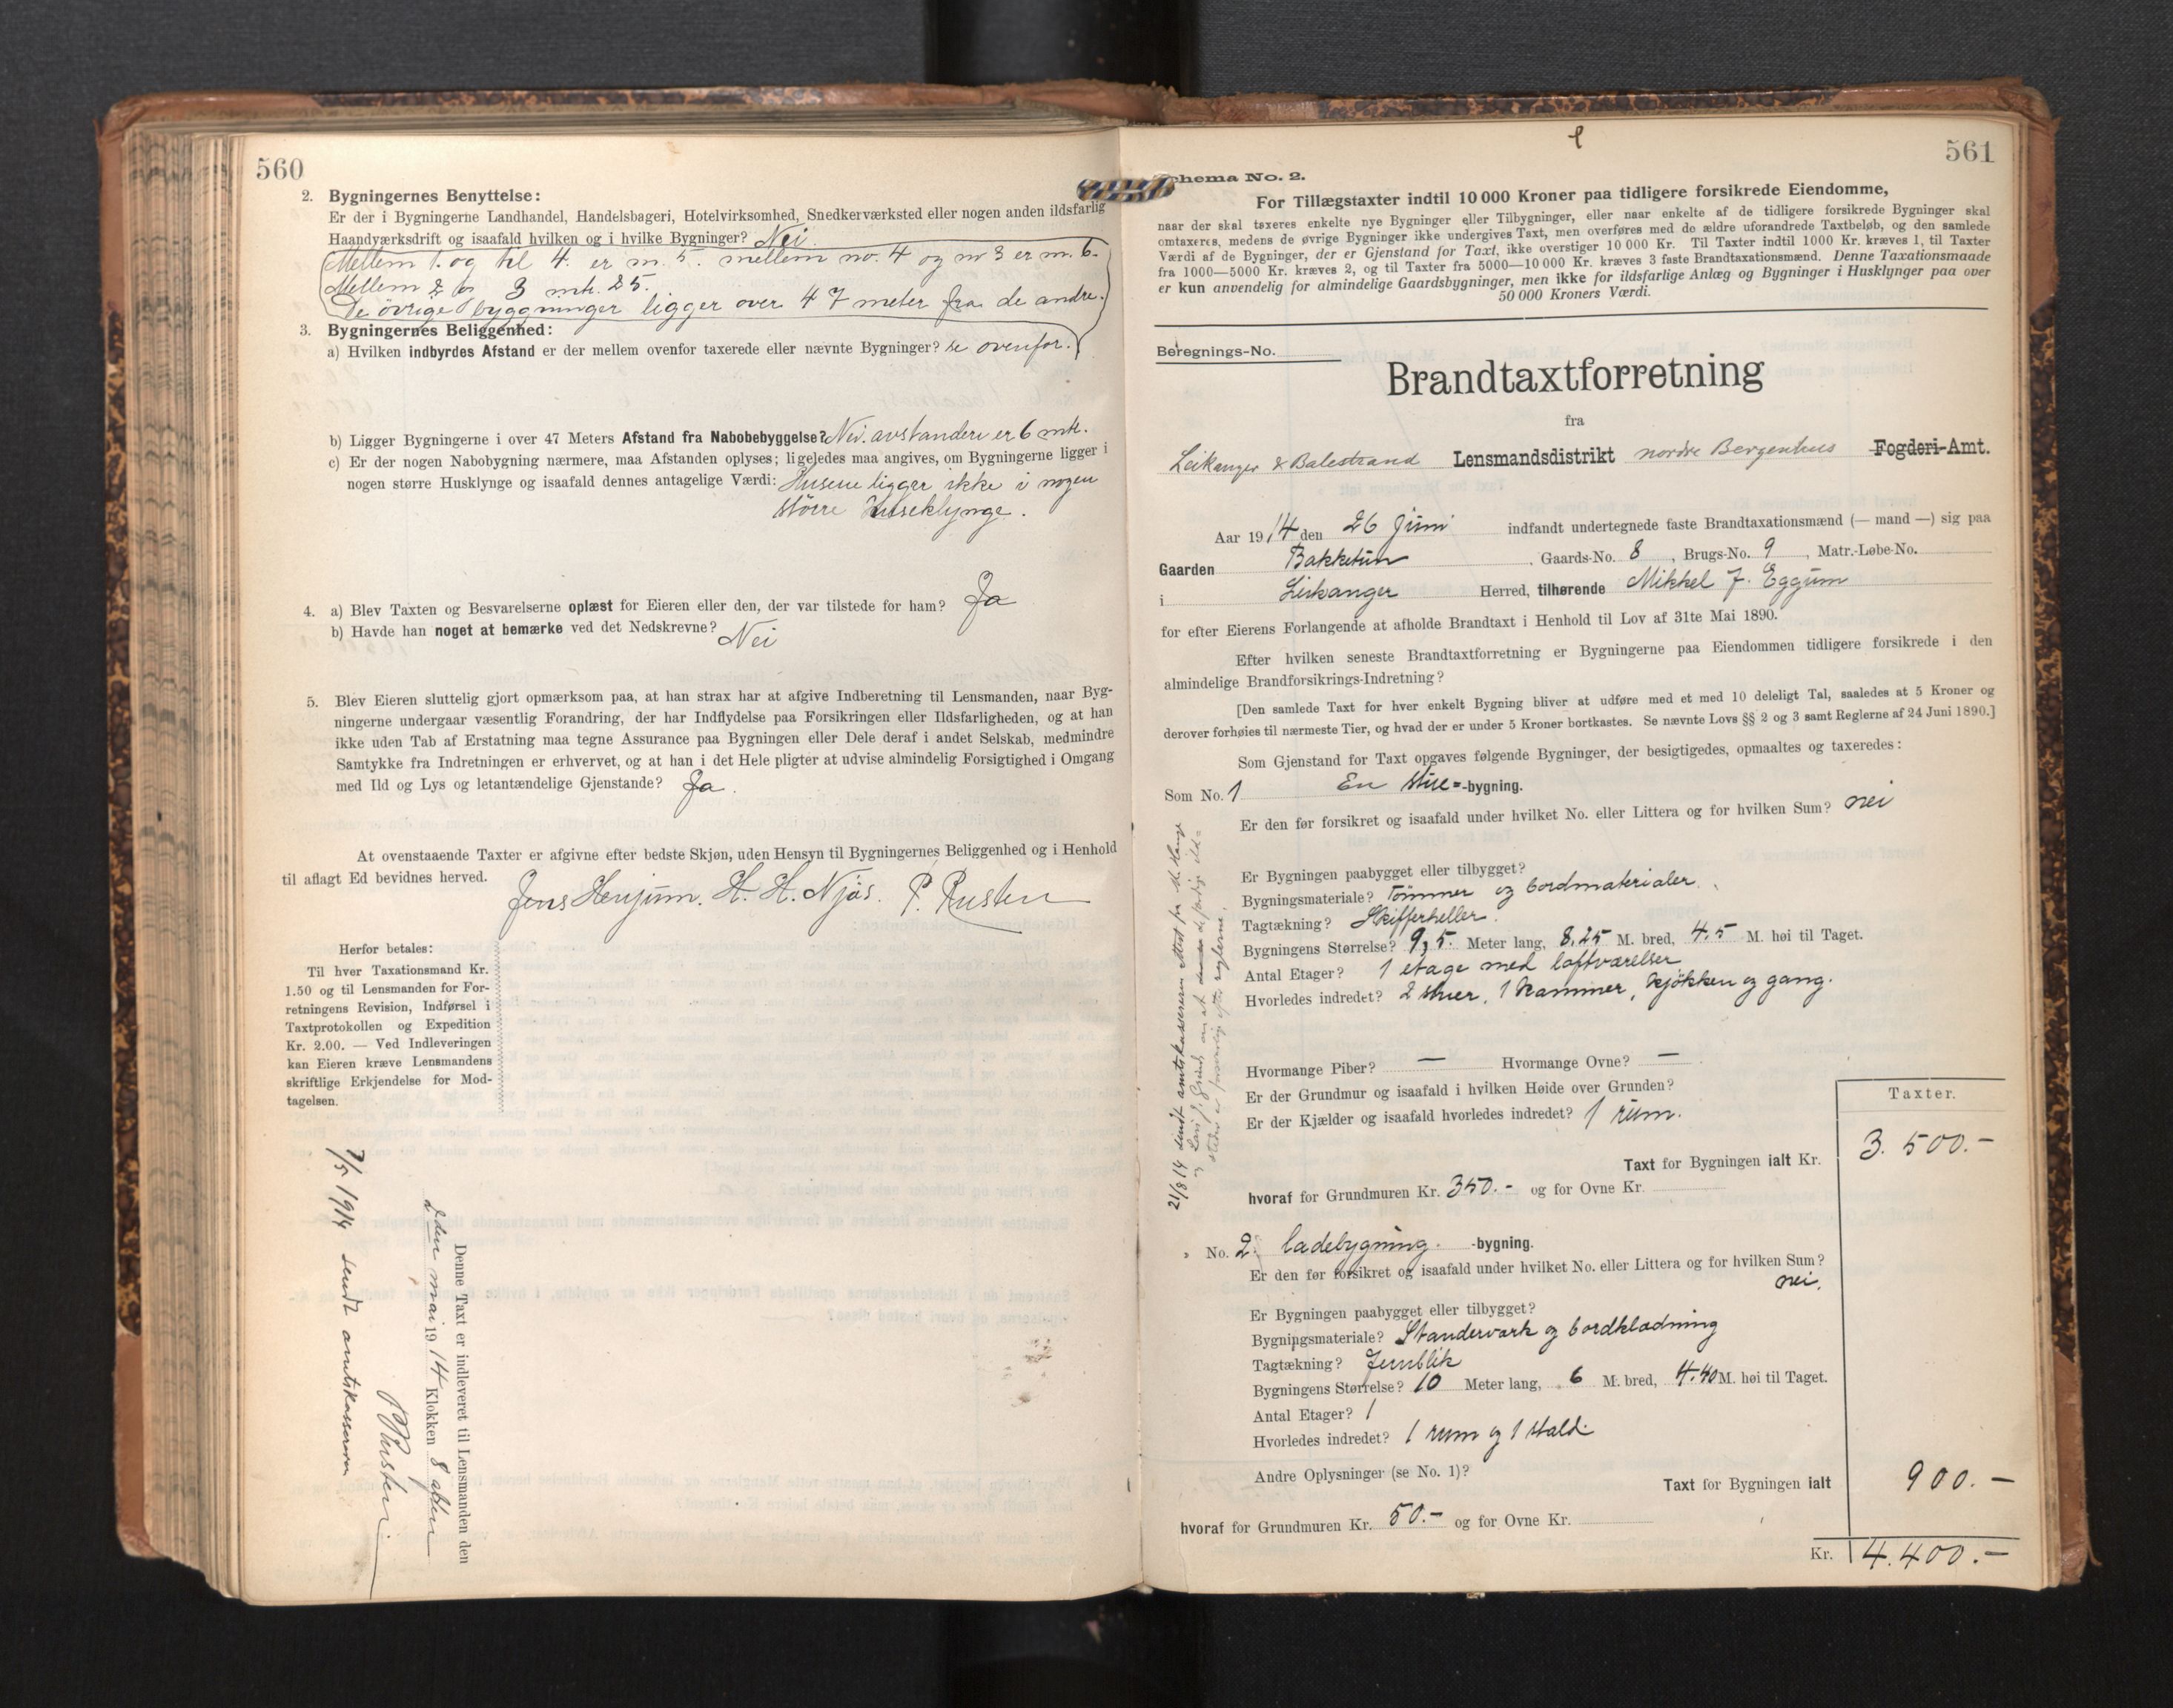 560
2. Bygningernes Benyttelse:
Er der i Bygningerne Landhandel, Handelsbageri, Hotelvirksomhed, Snedkerværksted eller nogen anden ildsfarlig
Haandværksdrift og isaafald hvilken og i hvilke Bygninger? Nei.
Mellem 1. og til 4. er m. 5. mellem no. 4 og nr 3 er m. 6.
Mellem 2 og 3 mtr. 25.
De övrige byggninger ligger over 47 meter fra de andre.
3. Bygningernes Beliggenhed:
a) Hvilken indbyrdes Afstand er der mellem ovenfor taxerede eller nævnte Bygninger? se ovenfor.
b) Ligger Bygningerne i over 47 Meters Afstand fra Nabobebyggelse? Nei. avstanden er 6 mtr.
c) Er der nogen Nabobygning nærmere, maa Afstanden oplyses; ligeledes maa angives, om Bygningerne ligger i
nogen større Husklynge og isaafald dennes antagelige Værdi: Husene ligger ikke i nogen
större Husklynge.
4. a) Blev Taxten og Besvarelserne oplæst for Eieren eller den, der var tilstede for ham? Ja
b) Havde han noget at bemærke ved det Nedskrevne? Nei
5. Blev Eieren sluttelig gjort opmærksom paa, at han strax har at afgive Indberetning til Lensmanden, naar Byg-
ningerne undergaar væsentlig Forandring, der har Indflydelse paa Forsikringen eller Ildsfarligheden, og at han
ikke uden Tab af Erstatning maa tegne Assurance paa Bygningen eller Dele deraf i andet Selskab, medmindre
Samtykke fra Indretningen er erhvervet, og at han i det Hele pligter at udvise almindelig Forsigtighed i Omgang
med Ild og Lys og letantændelige Gjenstande? Ja.
At ovenstaaende Taxter er afgivne efter bedste Skjøn, uden Hensyn til Bygningernes Beliggenhed og i Henhold
til aflagt Ed bevidnes herved.
Jens Henjum. H. H. Njøs. P. Rusten
Herfor betales:
Til hver Taxationsmand Kr.
1.50 og til Lensmanden for For-
retningens Revision, Indførsel i
Taxtprotokollen og Expedition
Kr. 2.00. — Ved Indleveringen
kan Eieren kræve Lensmandens
skriftlige Erkjendelse for Mod-
tagelsen.
Denne Taxt er indleveret til Lensmanden den
2den mai 1914 Klokken 8 aften
P Rusten
7/5 1914 sendt amtskassereren
561
Schema No. 2.
For Tillægstaxter indtil 10 000 Kroner paa tidligere forsikrede Eiendomme,
naar der skal taxeres enkelte nye Bygninger eller Tilbygninger, eller naar enkelte af de tidligere forsikrede Bygninger skal
omtaxeres, medens de øvrige Bygninger ikke undergives Taxt, men overføres med de ældre uforandrede Taxtbeløb, og den samlede
Værdi af de Bygninger, der er Gjenstand for Taxt, ikke overstiger 10 000 Kr. Til Taxter indtil 1000 Kr. kræves 1, til Taxter
fra 1000—5000 Kr. kræves 2, og til Taxter fra 5000—10 000 Kr. kræves 3 faste Brandtaxationsmænd. Denne Taxationsmaade
er kun anvendelig for almindelige Gaardsbygninger, men ikke for ildsfarlige Anlæg og Bygninger i Husklynger paa over
50 000 Kroners Værdi.
Beregnings-No.
Brandtaxtforretning
fra
Leikanger & Balestrand Lensmandsdistrikt nordre Bergenhus Fogderi-Amt.
Aar 1914 den 26 Juni indfandt undertegnede faste Brandtaxationsmænd (— mand —) sig paa
Gaarden Bakketun, Gaards-No. 8, Brugs-No. 9, Matr.-Løbe-No.
i Leikanger Herred, tilhørende Mikkel J. Eggum
for efter Eierens Forlangende at afholde Brandtaxt i Henhold til Lov af 31te Mai 1890.
Efter hvilken seneste Brandtaxtforretning er Bygningerne paa Eiendommen tidligere forsikrede i den
almindelige Brandforsikrings-Indretning?
[Den samlede Taxt for hver enkelt Bygning bliver at udføre med et med 10 deleligt Tal, saaledes at 5 Kroner og
derover forhøies til nærmeste Tier, og hvad der er under 5 Kroner bortkastes. Se nævnte Lovs §§ 2 og 3 samt Reglerne af 24 Juni 1890.]
Som Gjenstand for Taxt opgaves følgende Bygninger, der besigtigedes, opmaaltes og taxeredes:
Som No. 1 En stue=-bygning.
Er den før forsikret og isaafald under hvilket No. eller Littera og for hvilken Sum? nei
Er Bygningen paabygget eller tilbygget?
Bygningsmateriale? Tømmer og bordmaterialer.
Tagtækning? Skifferheller.
Bygningens Størrelse? 9,5. Meter lang, 8,25 M. bred, 4.5 M. høi til Taget.
Antal Etager? 1 etage med loftværelser
Hvorledes indredet? 2 stuer, 1 kammer, kjøkken og gang.
Hvormange Piber? — Hvormange Ovne? —
Er der Grundmur og isaafald i hvilken Høide over Grunden?
Er der Kjælder og isaafald hvorledes indredet? 1 rum.
Taxter.
Taxt for Bygningen ialt Kr. 3.500.-
hvoraf for Grundmuren Kr. 350.- og for Ovne Kr.
21/8 14 sendt amtskassereren Attest fra
No. 2. ladebygning. -bygning.
Er den før forsikret og isaafald under hvilket No. eller Littera og for hvilken Sum?
nei.
Er Bygningen paabygget eller tilbygget?
Bygningsmateriale? Standervœrk og bordklædning
Tagtækning? Jernblik
Bygningens Størrelse? 10 Meter lang, 6 M. bred, 4.40 M. høi til Taget.
Antal Etager? 1
Hvorledes indredet? 1 rum og 1 stald.
Andre Oplysninger (se No. 1)?
Taxt for Bygningen ialt 900.-
hvoraf for Grundmuren Kr. 50.- og for Ovne Kr.
Kr. 4.400.-